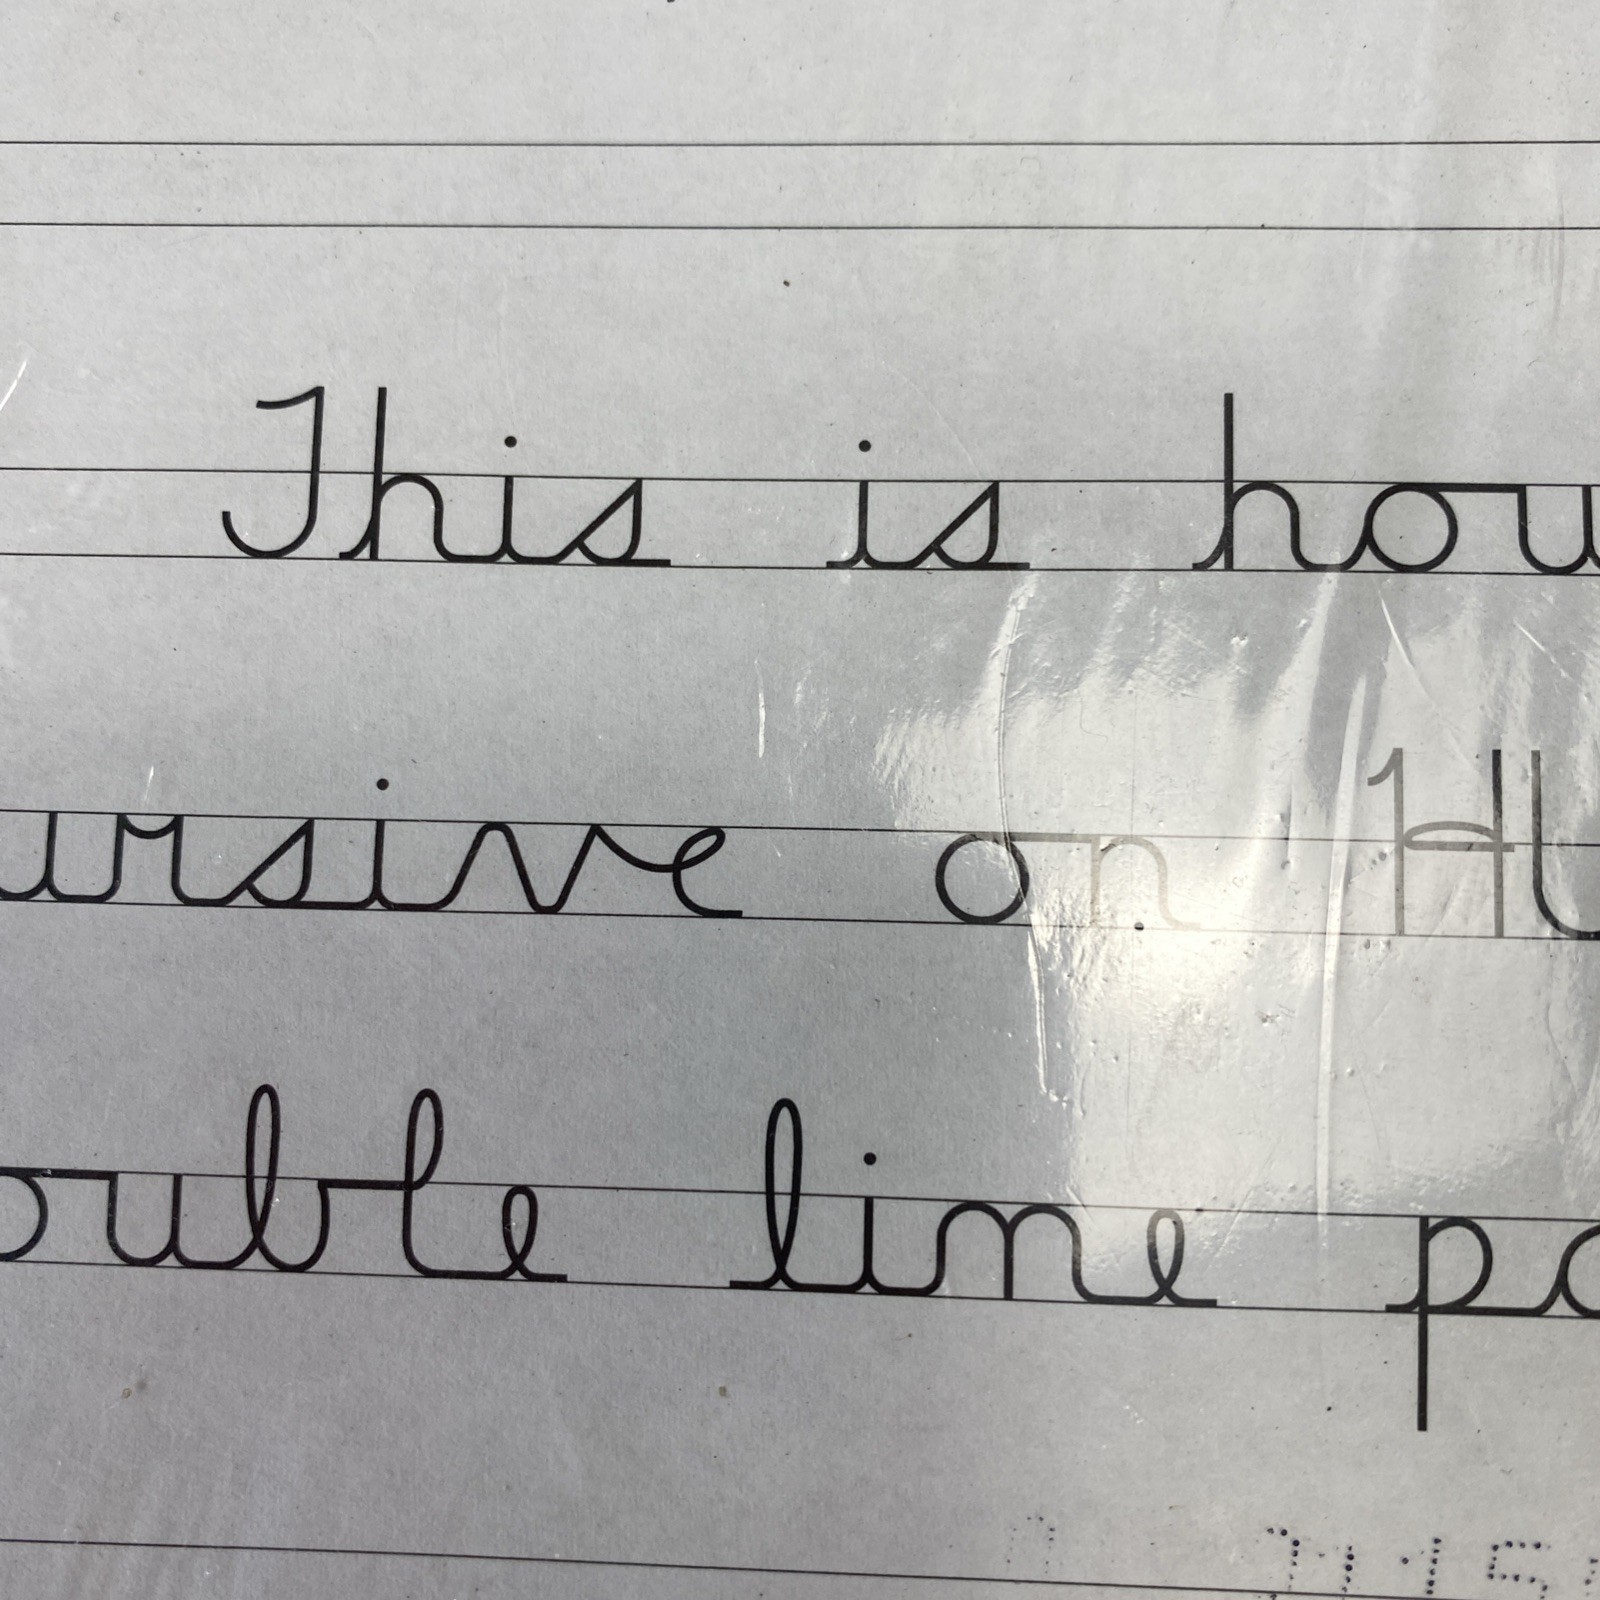 This is how
ursive on HU
ouble line pa